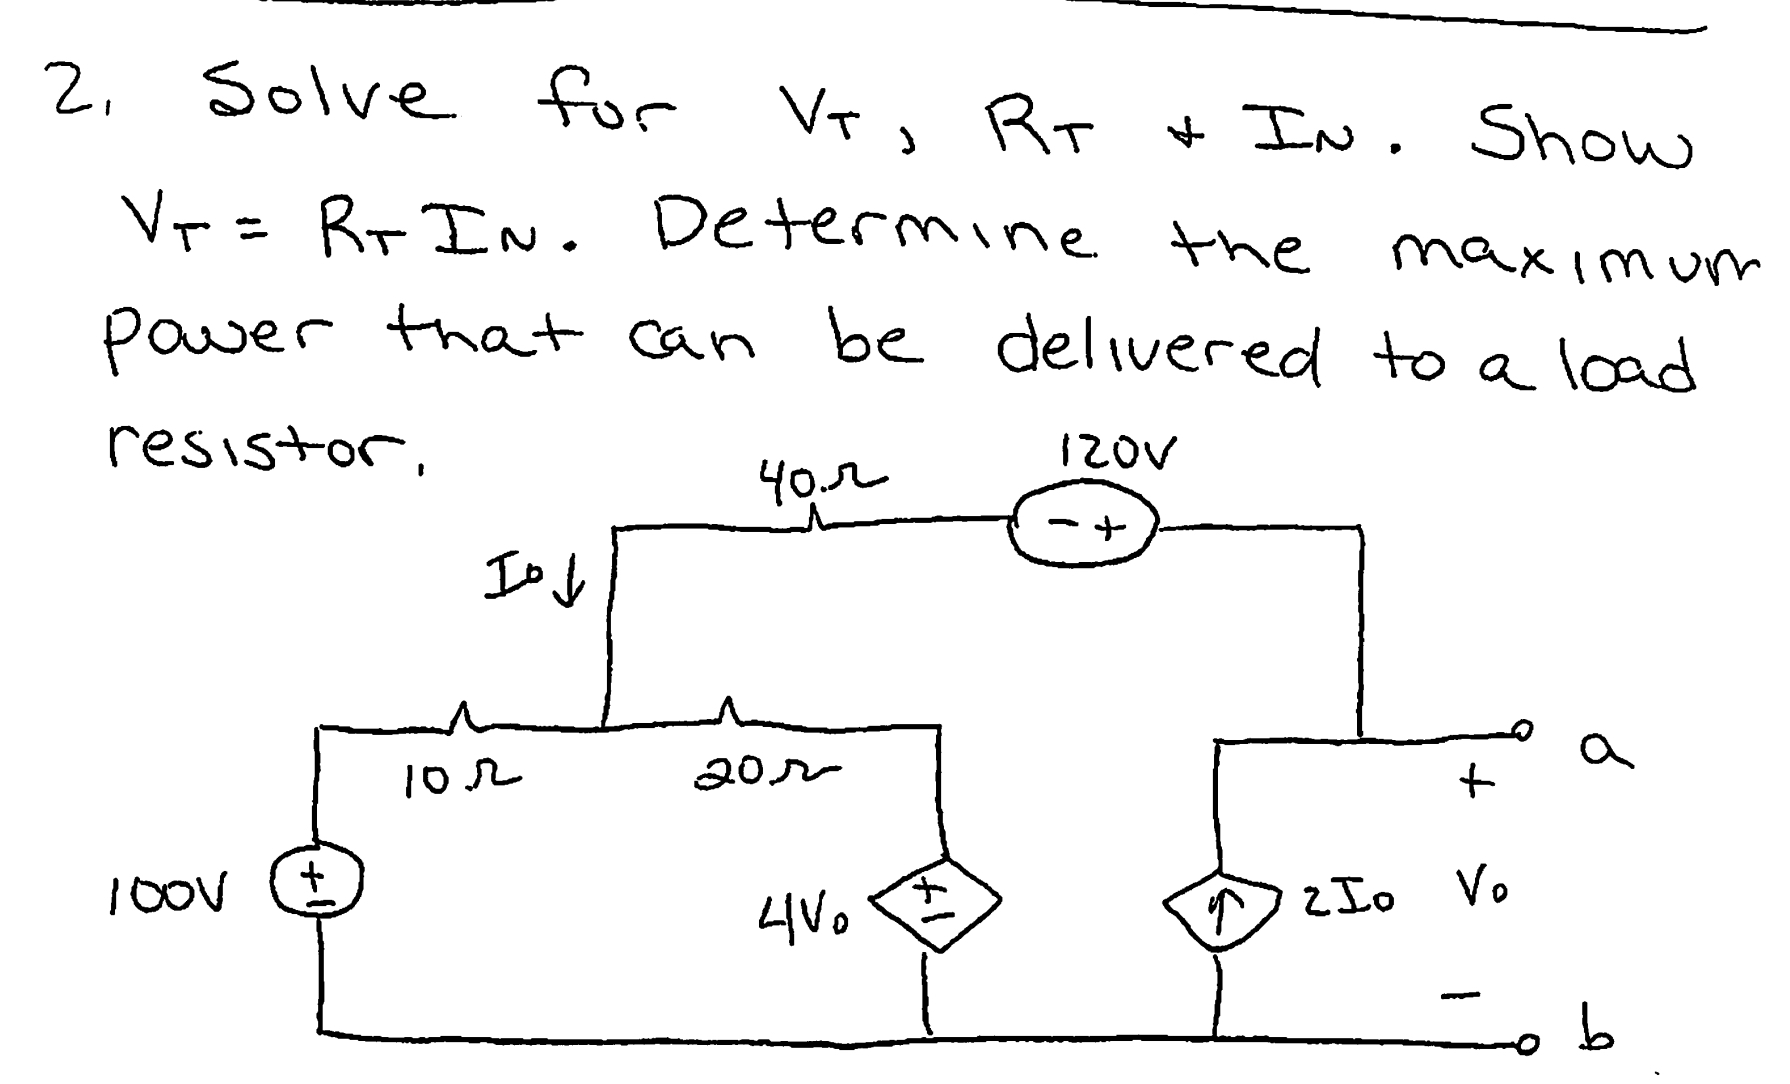 2. Solve for VT, RT + IN. Show
VT = RT IN. Determine the maximum
power that can be delivered to a load
resistor.
120V
40Ω
- +
Io ↓
10Ω
20Ω
a
+
100V
+
-
4Vo
+
-
↑
2Io
Vo
-
b